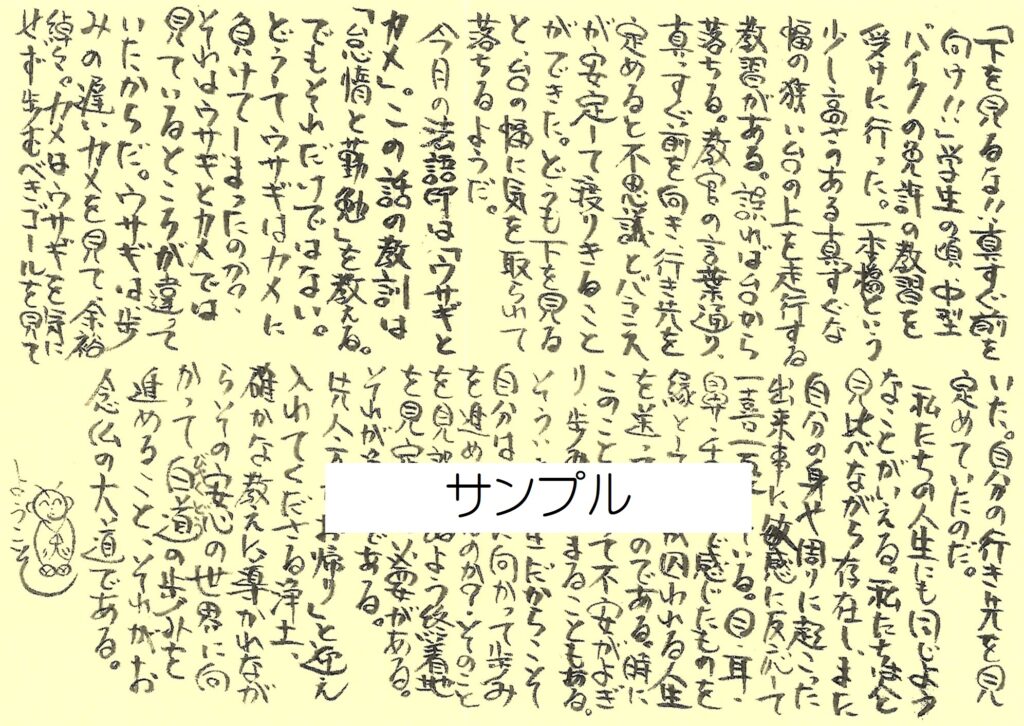 「下を見るな!!真すぐ前を
向け!!」学生の頃、中型
バイクの免許の教習を
受けに行った。一本橋という
少し高さのある真すぐな
幅の狭い台の上を走行する
教習がある。誤れば台から
落ちる。教官の言葉通り、
真っすぐ前を向き、行き先を
定めると不思議とバランス
が安定して渡りきること
ができた。どうも下を見る
と、台の幅に気を取られて
落ちるようだ。
今月の法語印は「ウサギと
カメ」。この話の教訓は
「怠惰と勤勉」を教える。
でもそれだけではない。
どうしてウサギはカメに
負けてしまったのか?
それはウサギとカメでは
見ているところが違って
いたからだ。ウサギは歩
みの遅いカメを見て、余裕
綽々。カメはウサギを気に
せず歩むべきゴールを見て
いた。自分の行き先を見
定めていたのだ。
私たちの人生にも同じよう
なことがいえる。私たちは人と
見比べながら存在し、また
自分の身や周りに起こった
出来事に敏感に反応して
一喜一
いる。目・耳・
鼻・
で感じたものを
縁と
囚われる人生
を送っ
のである。時に
このこと
て不安がよぎ
り歩み
まることもある。
そうい
だからこそ
自分は
に向かって歩み
を進め
のか?そのこと
を見
よう終着地
を見定
必要がある。
それが
である。
お帰り」と迎え
入れてくださる浄土。
確かな教えに導かれなが
らその安心の世界に向
かって白道の歩みを
びゃくどう
進めること、それがお
念仏の大道である。
ようこそ
サンプル